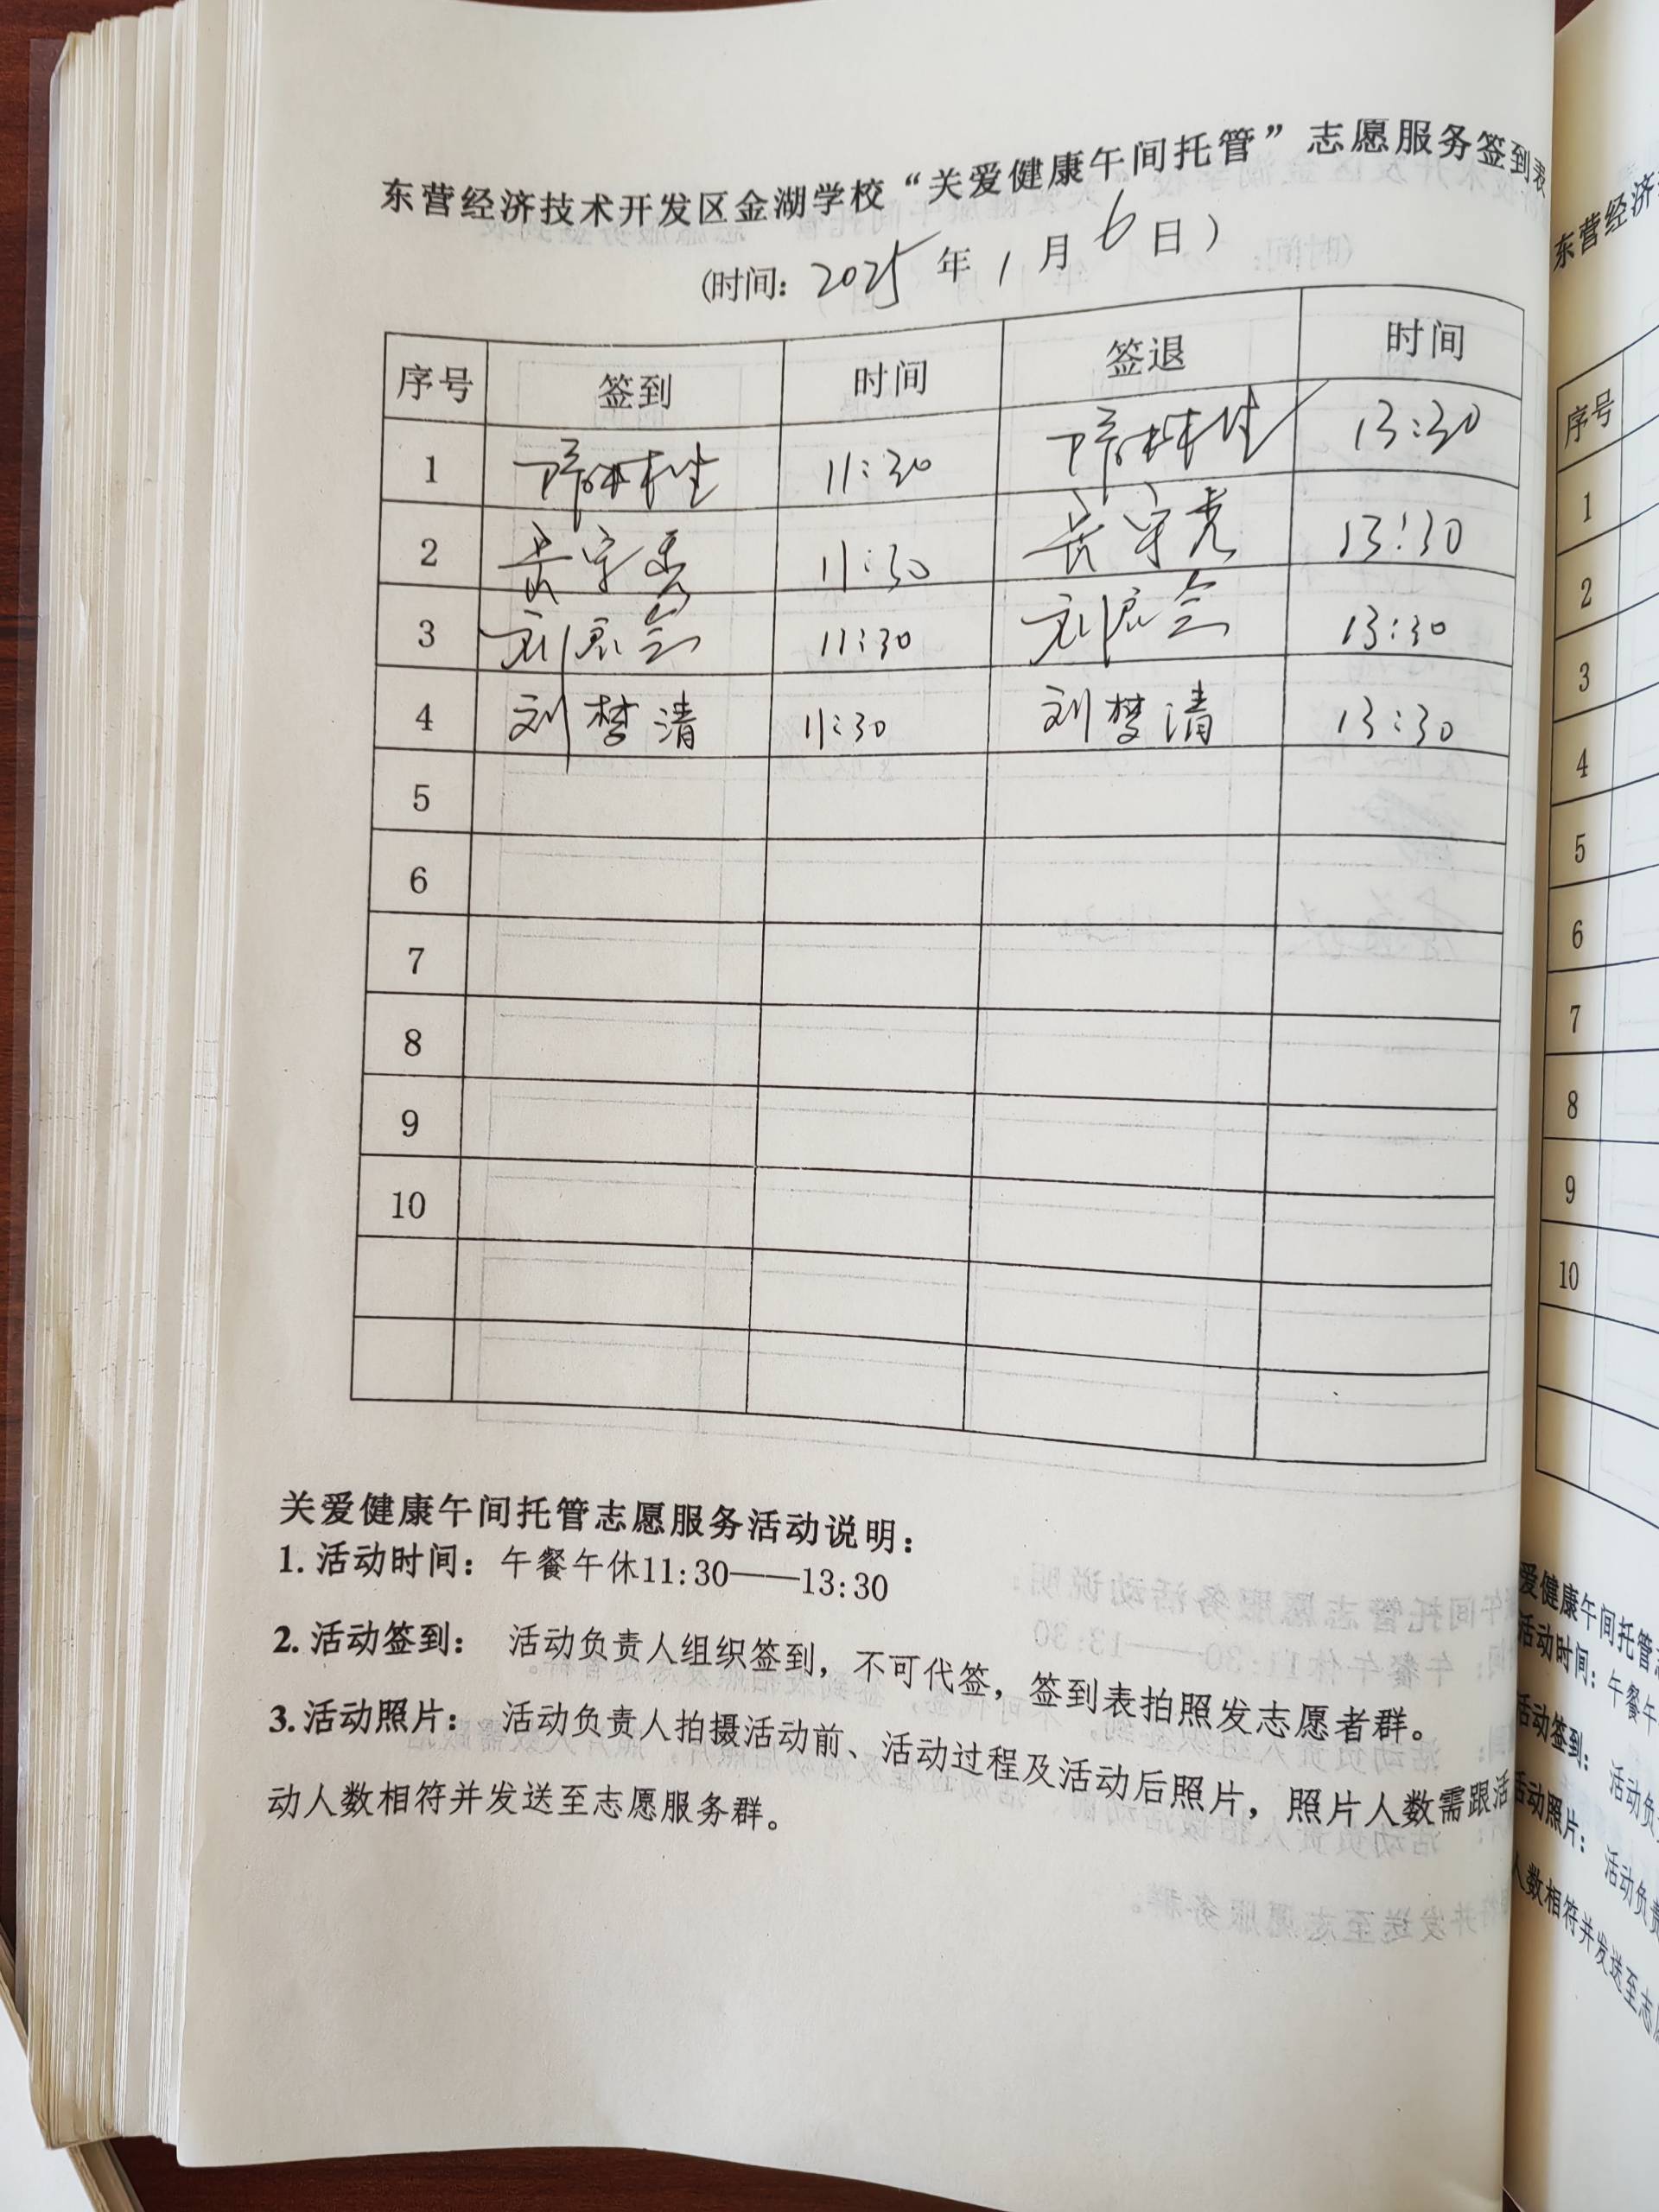 东营经济技术开发区金湖学校“关爱健康午间托管”志愿服务签到表
(时间: 2025 年 1 月 6 日)
序号 签到 时间 签退 时间
1 11:30 13:30
2 11:30 13:30
3 11:30 13:30
4 刘梦清 11:30 刘梦清 13:30
5
6
7
8
9
10
关爱健康午间托管志愿服务活动说明:
1. 活动时间: 午餐午休11:30——13:30
2. 活动签到: 活动负责人组织签到,不可代签,签到表拍照发志愿者群。
3. 活动照片: 活动负责人拍摄活动前、活动过程及活动后照片,照片人数需跟活
动人数相符并发送至志愿服务群。
东营经济
序号
1
2
3
4
5
6
7
8
9
10
爱健康午间托管
活动时间: 午餐午
活动签到: 活动负
活动照片: 活动负责
人数相符并发送至志愿